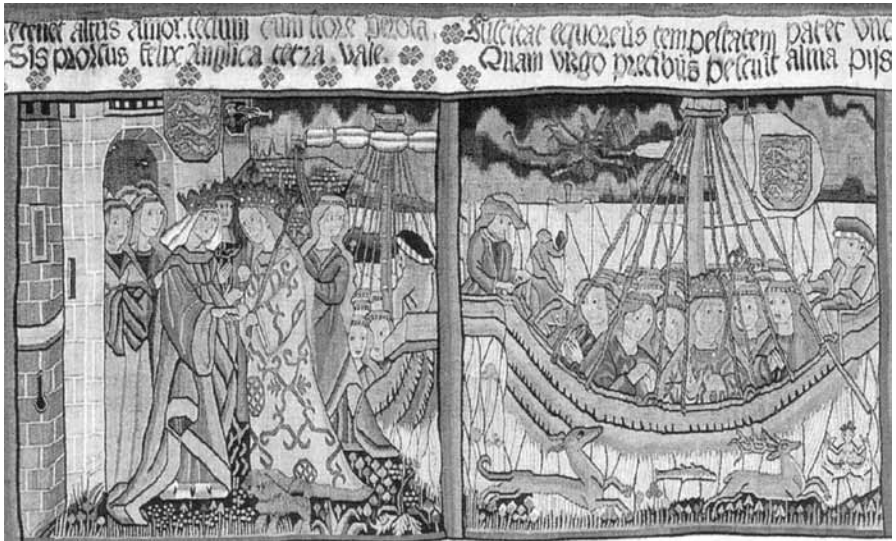 altus amor. tecum cum flore
Sis prorsus felix Anglica terra. vale.
Suscitat equoreus tempestatem pater
Quam virgo precibus alma pijs